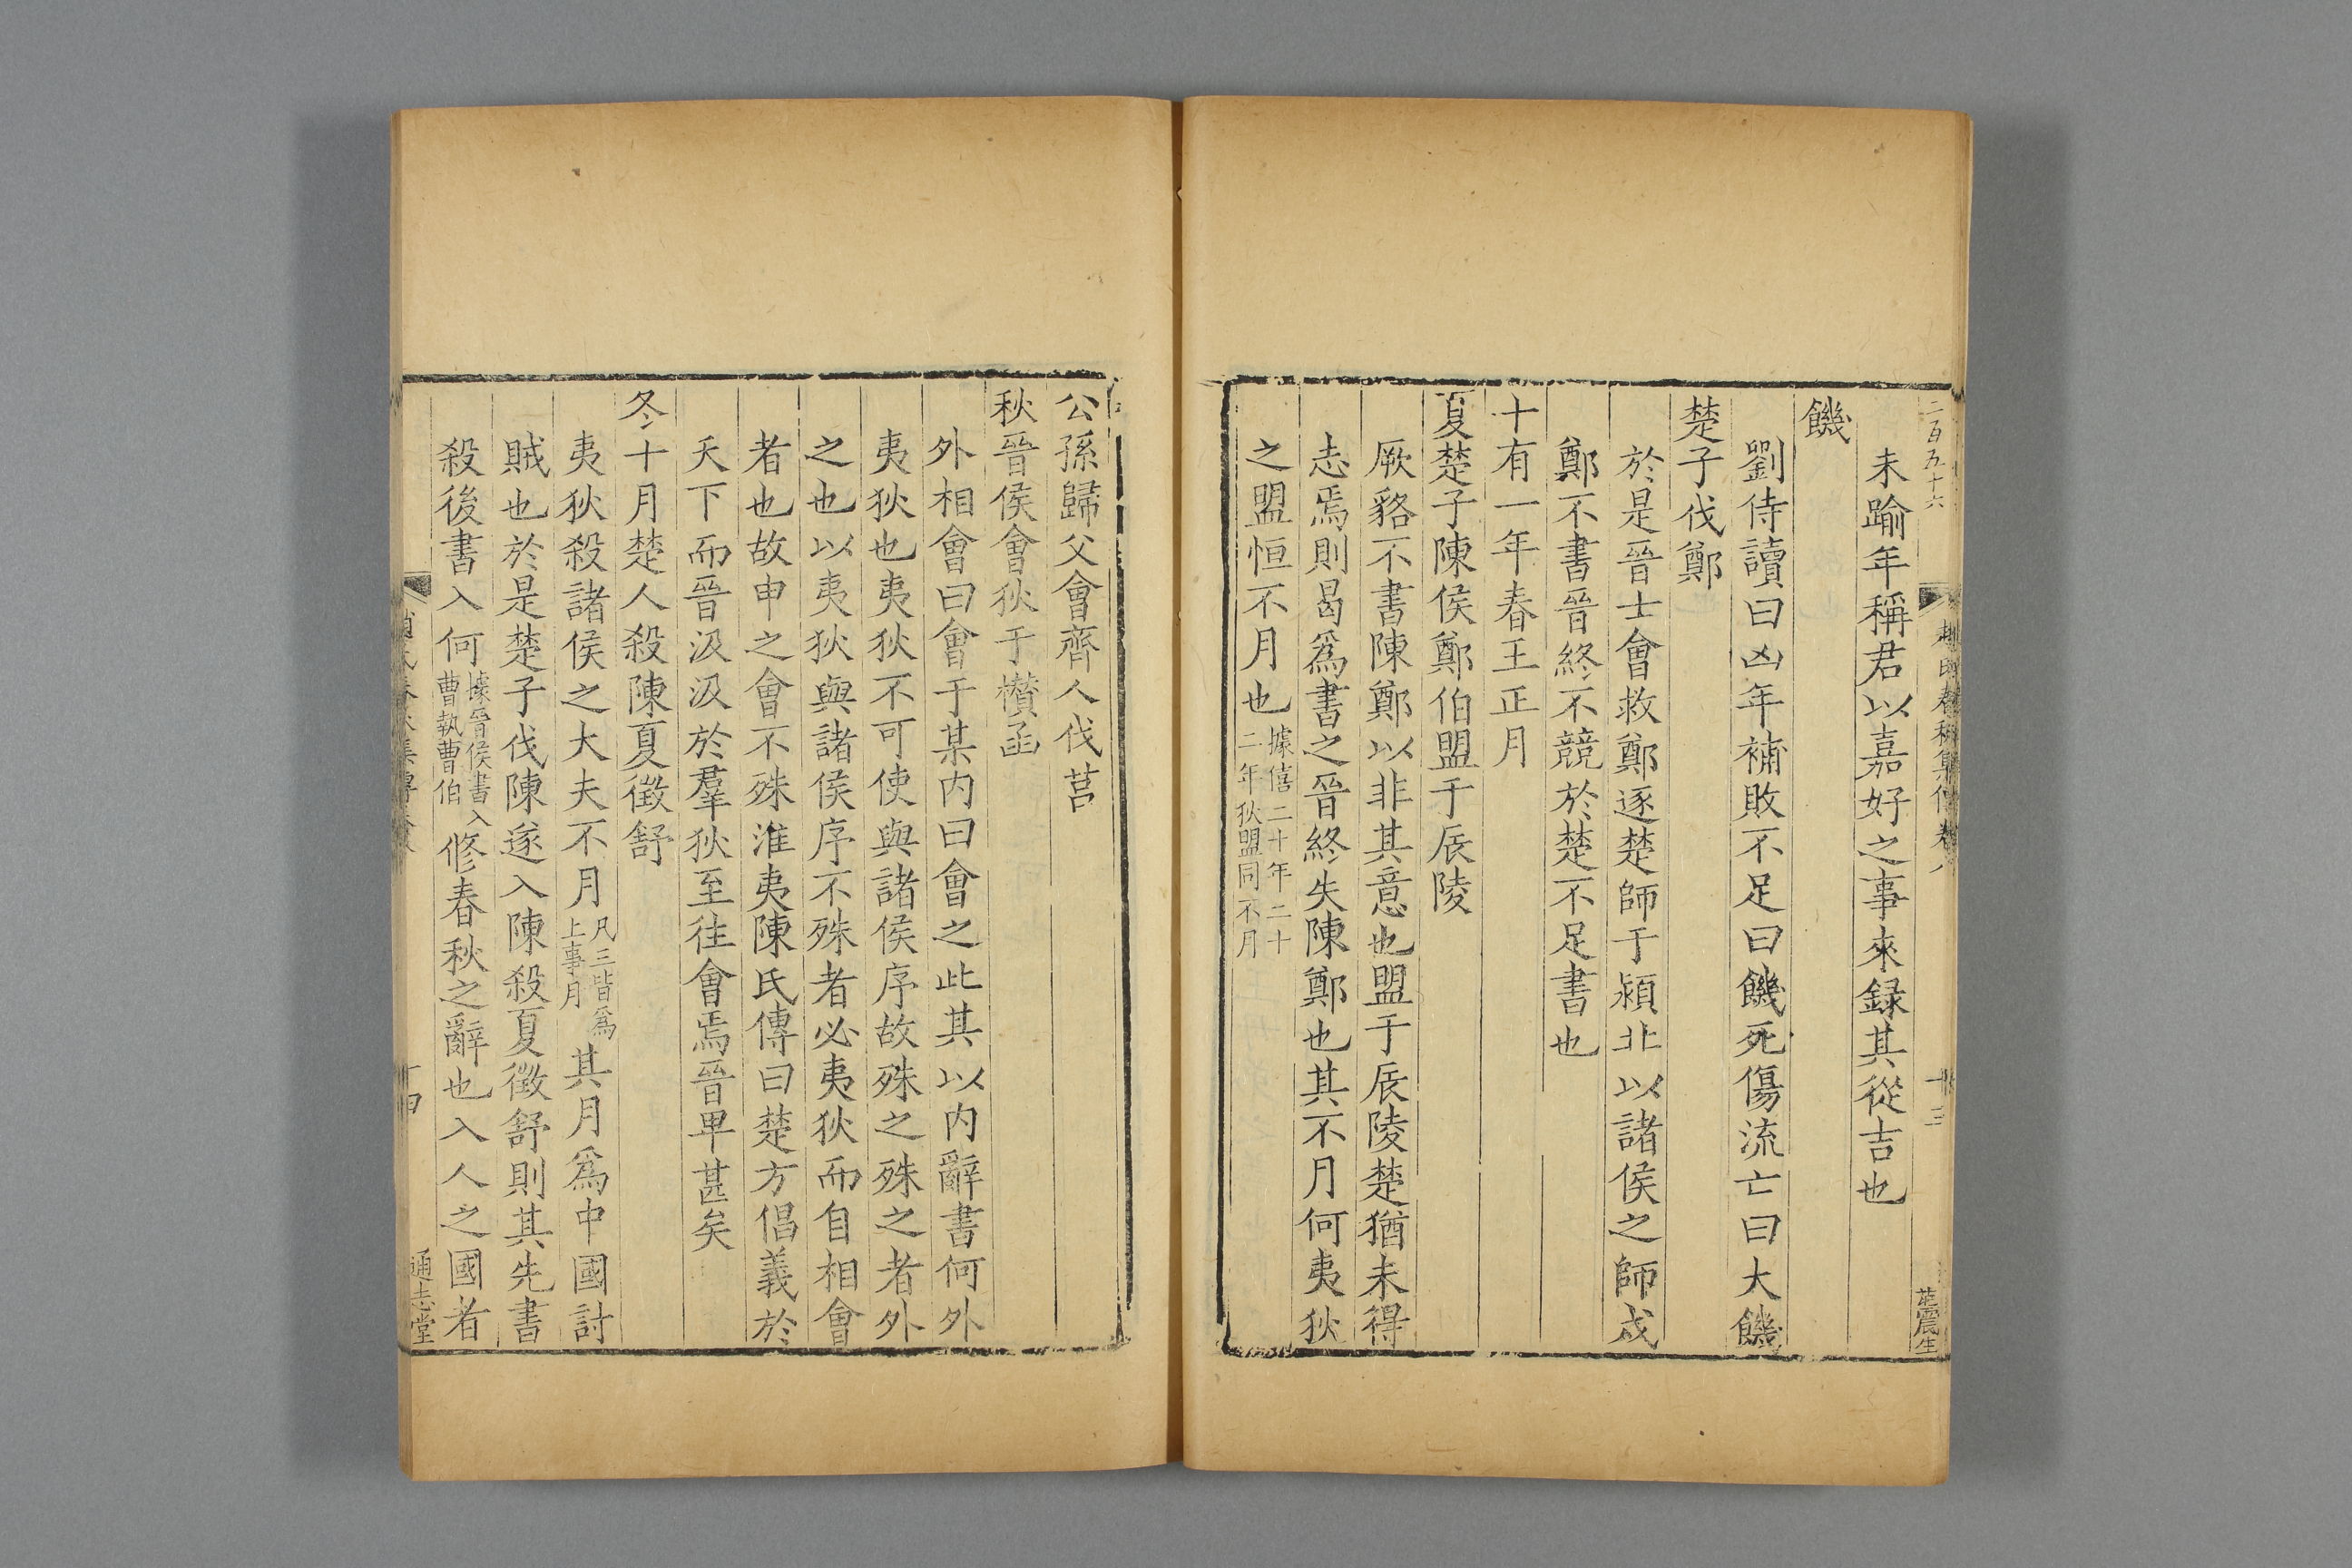 二百五十六
趙氏春秋集傳卷八
十三
未踰年稱君以嘉好之事來録其從吉也
饑
劉侍讀曰凶年補敗不足曰饑死傷流亡曰大饑
楚子伐鄭
於是晉士會救鄭逐楚師于潁北以諸侯之師戍
鄭不書晉終不競於楚不足書也
十有一年春王正月
夏楚子陳侯鄭伯盟于辰陵
厥貉不書陳鄭以非其意也盟于辰陵楚猶未得
志焉則曷爲書之晉終失陳鄭也其不月何夷狄
之盟恒不月也據僖二十年二十二年狄盟同不月
公孫歸父會齊人伐莒
秋晉侯會狄于欑函
外相會曰會于某内曰會之此其以内辭書何外
夷狄也夷狄不可使與諸侯序故殊之殊之者外
之也以夷狄與諸侯序不殊者必夷狄而自相會
者也故申之會不殊淮夷陳氏傳曰楚方倡義於
天下而晉汲汲於羣狄至往會焉晉卑甚矣
冬十月楚人殺陳夏徵舒
夷狄殺諸侯之大夫不月凡三皆爲上事月其月爲中國討
賊也於是楚子伐陳遂入陳殺夏徵舒則其先書
殺後書入何據晉侯書入曹執曹伯修春秋之辭也入人之國者
十四
通志堂